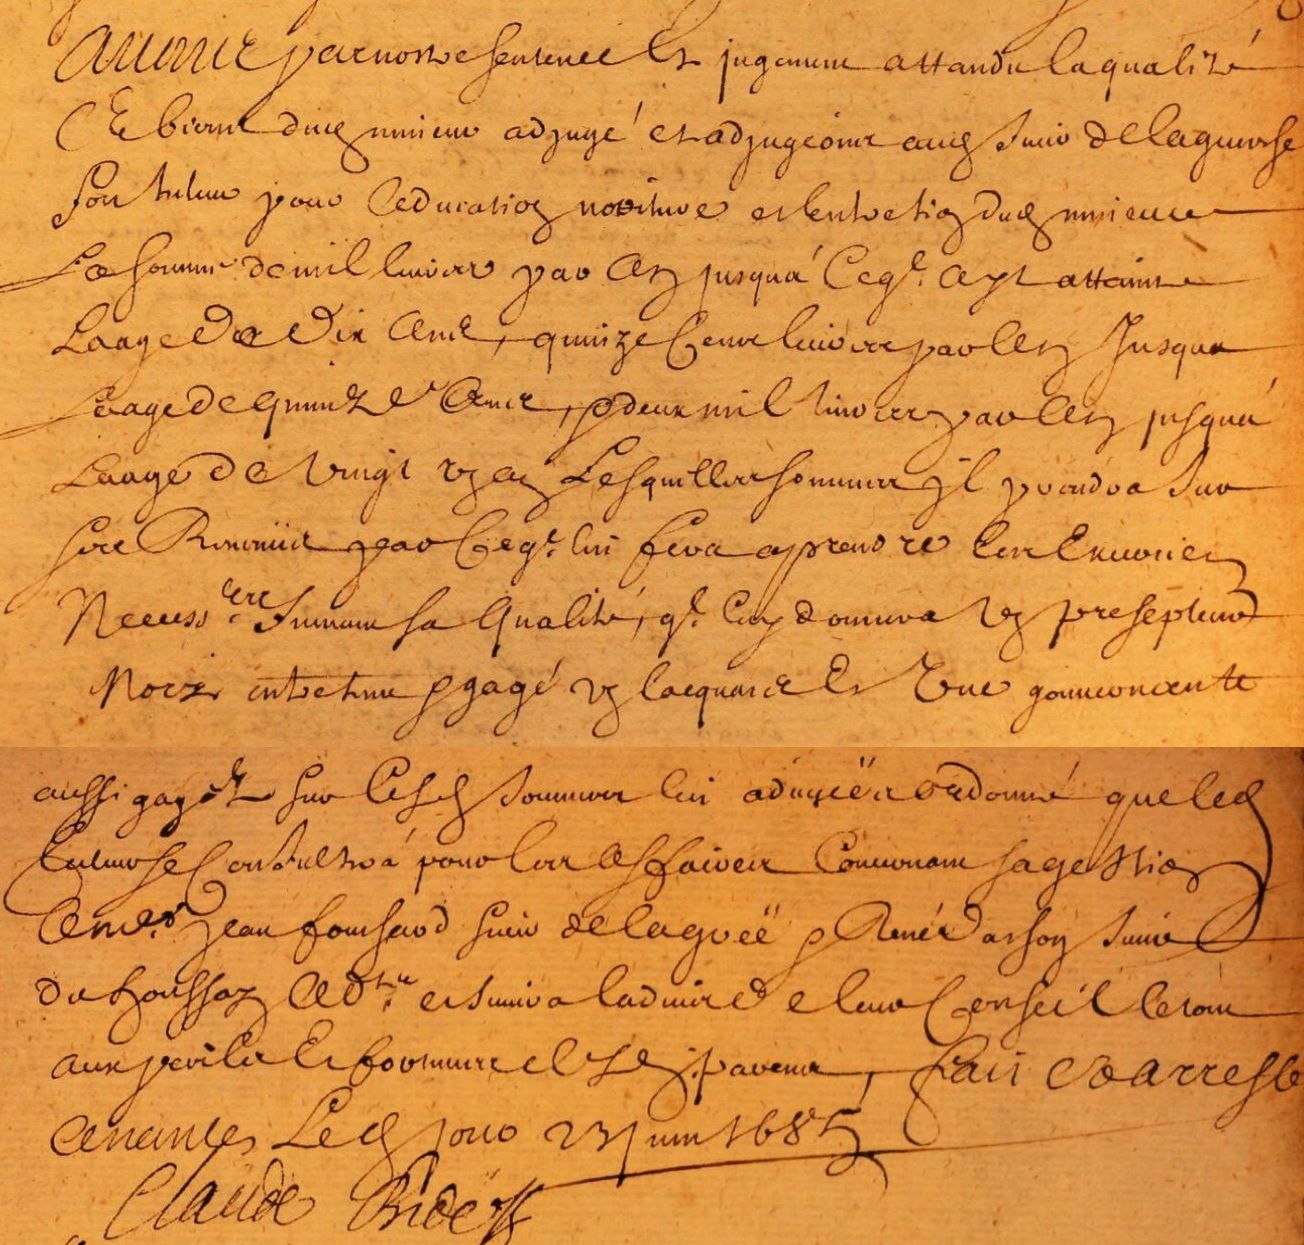 Avons par nostre sentence et jugement attandu la qualité
Et biens dud mineur adjugé et adjugeons aud Sieur de laguerche
son tuteur pour leducation noriture et lentretien dud mineur
La somme de mil livres par an jusqua ce q.l ayt attaint
Laage de dix ans, quinze cens livres par an Jusqua
laage de quinze ans, & deux mil livres par an jusqua
Laage de vingt un an Lesquelles sommes jl prendra sur
ses Revenus par ce q.l lui fera aprendre les Exercices
Necess.res Suivant sa qualité, q.l luy donnera un presepteur
Noriz entretenu & gagé un lacquais et Une gouvernante
aussi gagée sur lesd sommes lui adjugées ordonné que led
tuteur se consultera pour les affaires concernant sa gestion
a Jean foucherd sieur de lagrée & René darson sieur
du houssay ad.ts et suivra ladvis de leur conseil le tout
aux perils et fortunes desd parens, fait et arresté
a nantes Led jour 23 juin 1685
Claude Bidé